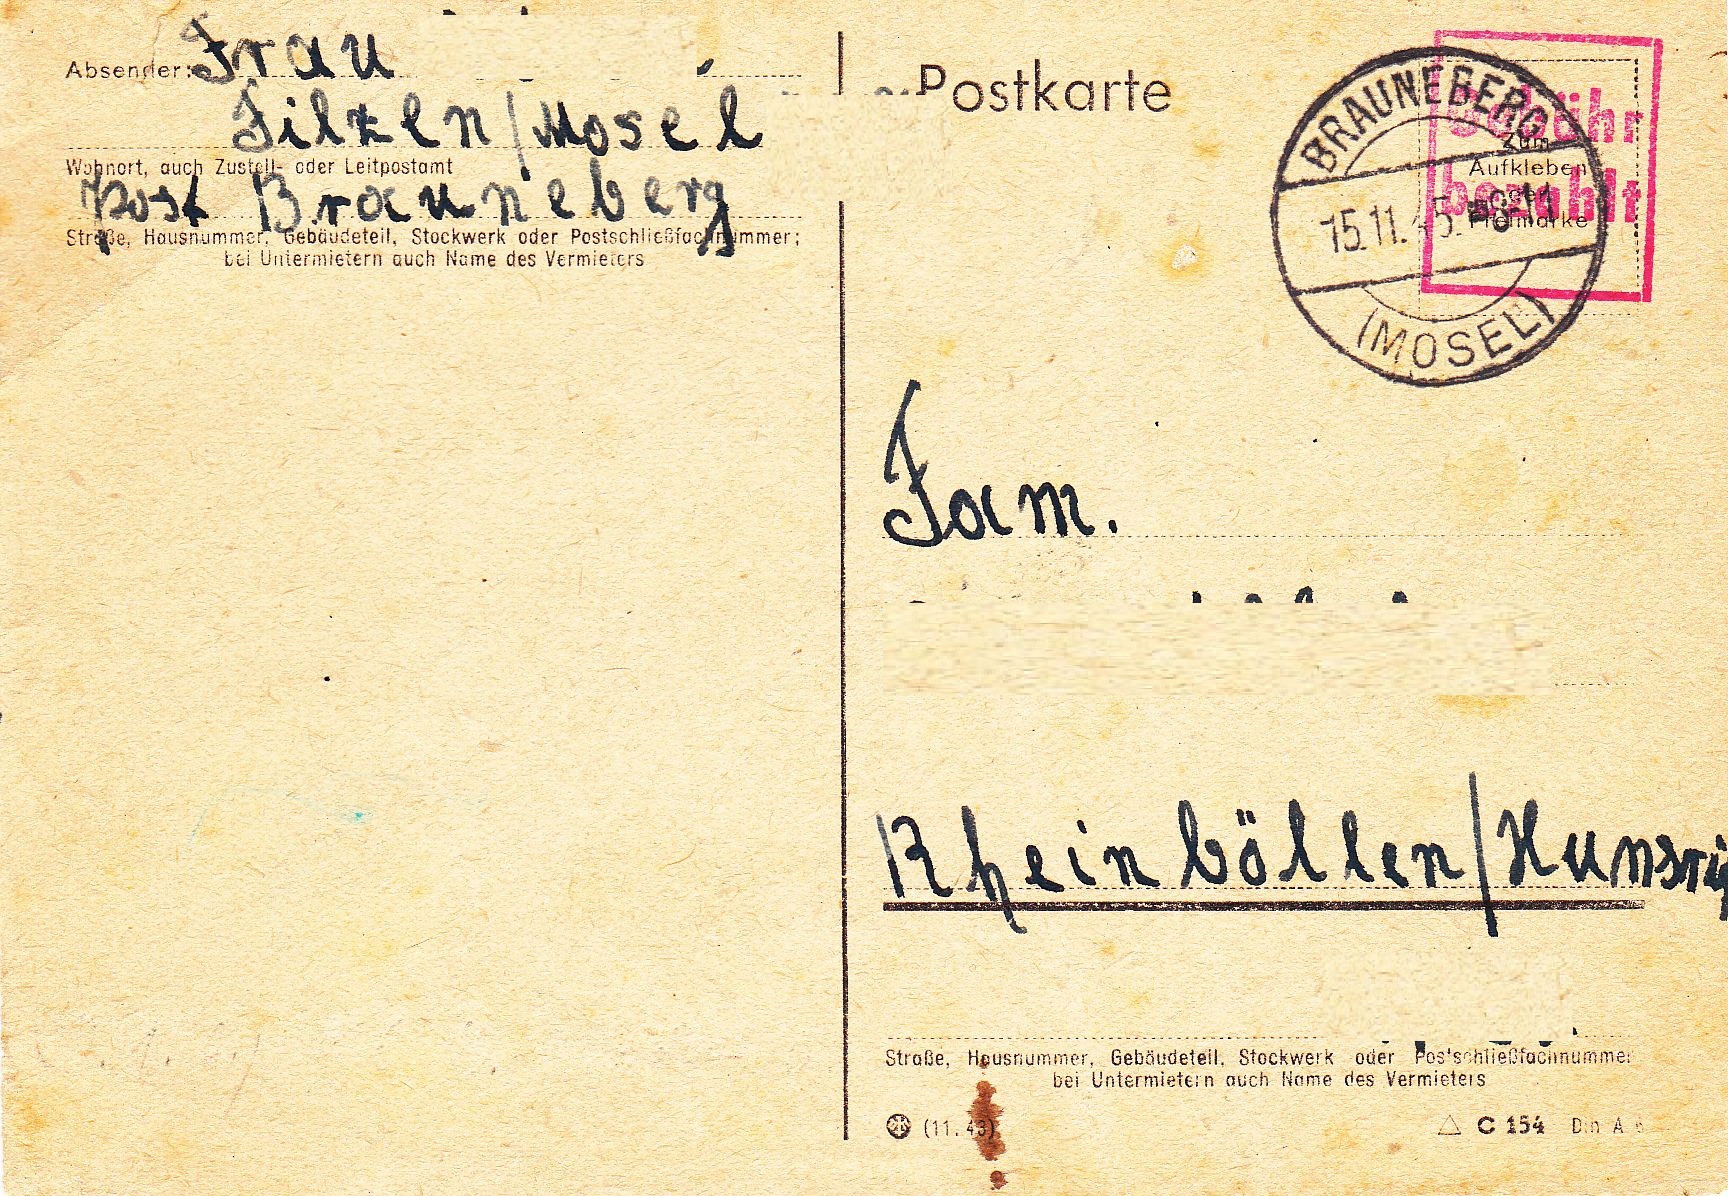 Absender: Frau
Filzen/Mosel
Wohnort, auch Zustell- oder Leitpostamt
Post Brauneberg
Straße, Hausnummer, Gebäudeteil, Stockwerk oder Postschließfachnummer;
bei Untermietern auch Name des Vermieters
Postkarte
BRAUNEBERG
15.11.45.
(MOSEL)
Gebühr
bezahlt
Zum
Aufkleben
der
Freimarke
Fam.
Rheinböllen/Hunsrü
Straße, Hausnummer, Gebäudeteil, Stockwerk oder Postschließfachnummer
bei Untermietern auch Name des Vermieters
(11.43)
C 154 Din A 6